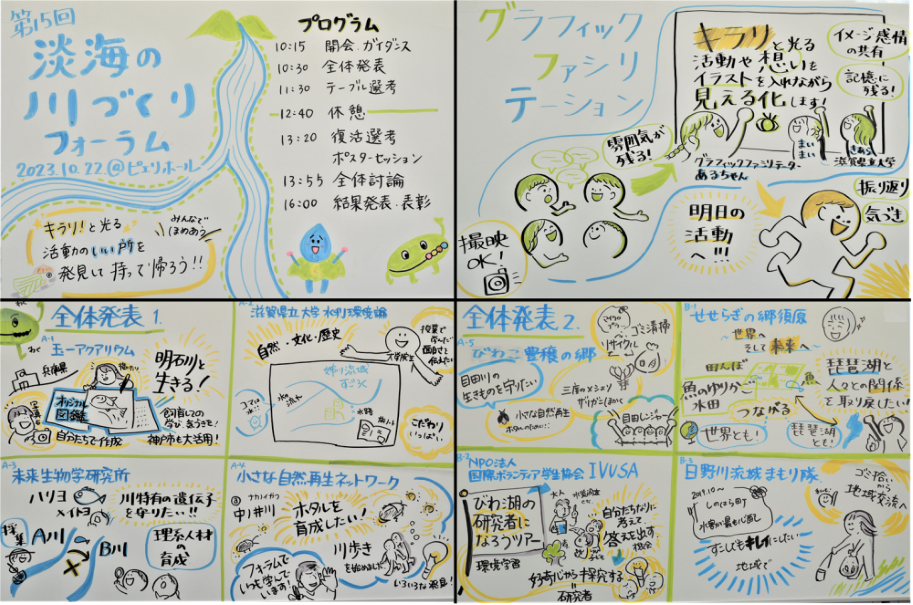 第15回
淡海の
川づくり
フォーラム
2023.10.22.@ピエリホール
キラリ!と光る
活動のいい所を
発見して持って帰ろう!!
みんなで
ほめあう
プログラム
10:15 開会.ガイダンス
10:30 全体発表
11:30 テーブル選考
12:40 休憩
13:20 復活選考
ポスターセッション
13:55 全体討論
16:00 結果発表.表彰
グラフィック
ファシリ
テーション
キラリと光る
活動や想いを
イラストを入れながら
見える化します!
イメージ感情
の共有
記憶に
残る!
雰囲気が
残る!
グラフィックファシリテーター
あるちゃん
まい
まい
滋賀県立大学
撮映
OK!
明日の
活動
へ!!!
振り返り
気づき
全体発表 1.
A-1
玉一アクアリウム
兵庫県
明石川と
生きる!
オリジナル
図鑑
自分たちで作成
神戸市も大活用!
A-2
滋賀県立大学 水圏環境論
自然・文化・歴史
授業で
学んだ
面白さを
伝えたい
大学院生
こだわり
いっぱい
A-3
未来生物学研究所
ハリヨ
メイトヨ
川特有の遺伝子
を守りたい!!
採集
A川
B川
理系人材
の
育成
A-4
小さな自然再生ネットワーク
ナカノイガワ
中ノ井川
ホタルを
育成したい!
フォーラムで
いつも学んで
います!
川歩き
を始めました
いろいろな発見!
全体発表 2.
A-5
びわこ豊穣の郷
ゴミ清掃
リサイクル
目田川の
生きものを守りたい
小さな自然再生
目田レンジャー
B-1
せせらぎの郷須原
〜世界へ
そして未来へ〜
田んぼ
魚のゆりかご
水田
つながる
世界とも!
琵琶湖
とも!
琵琶湖と
人々との関係
を取り戻したい!
B-2
NPO法人
国際ボランティア学生協会 IVUSA
びわ湖の
研究者に
なろうツアー
環境学習
自分たちなりに
考えて
答えを出す
機会
好奇心から探究する
研究者
B-3
日野川流域まもり隊
ゴミ拾い
から
地域交流へ
2019.10〜
すこしでもキレイにしたい
地域で